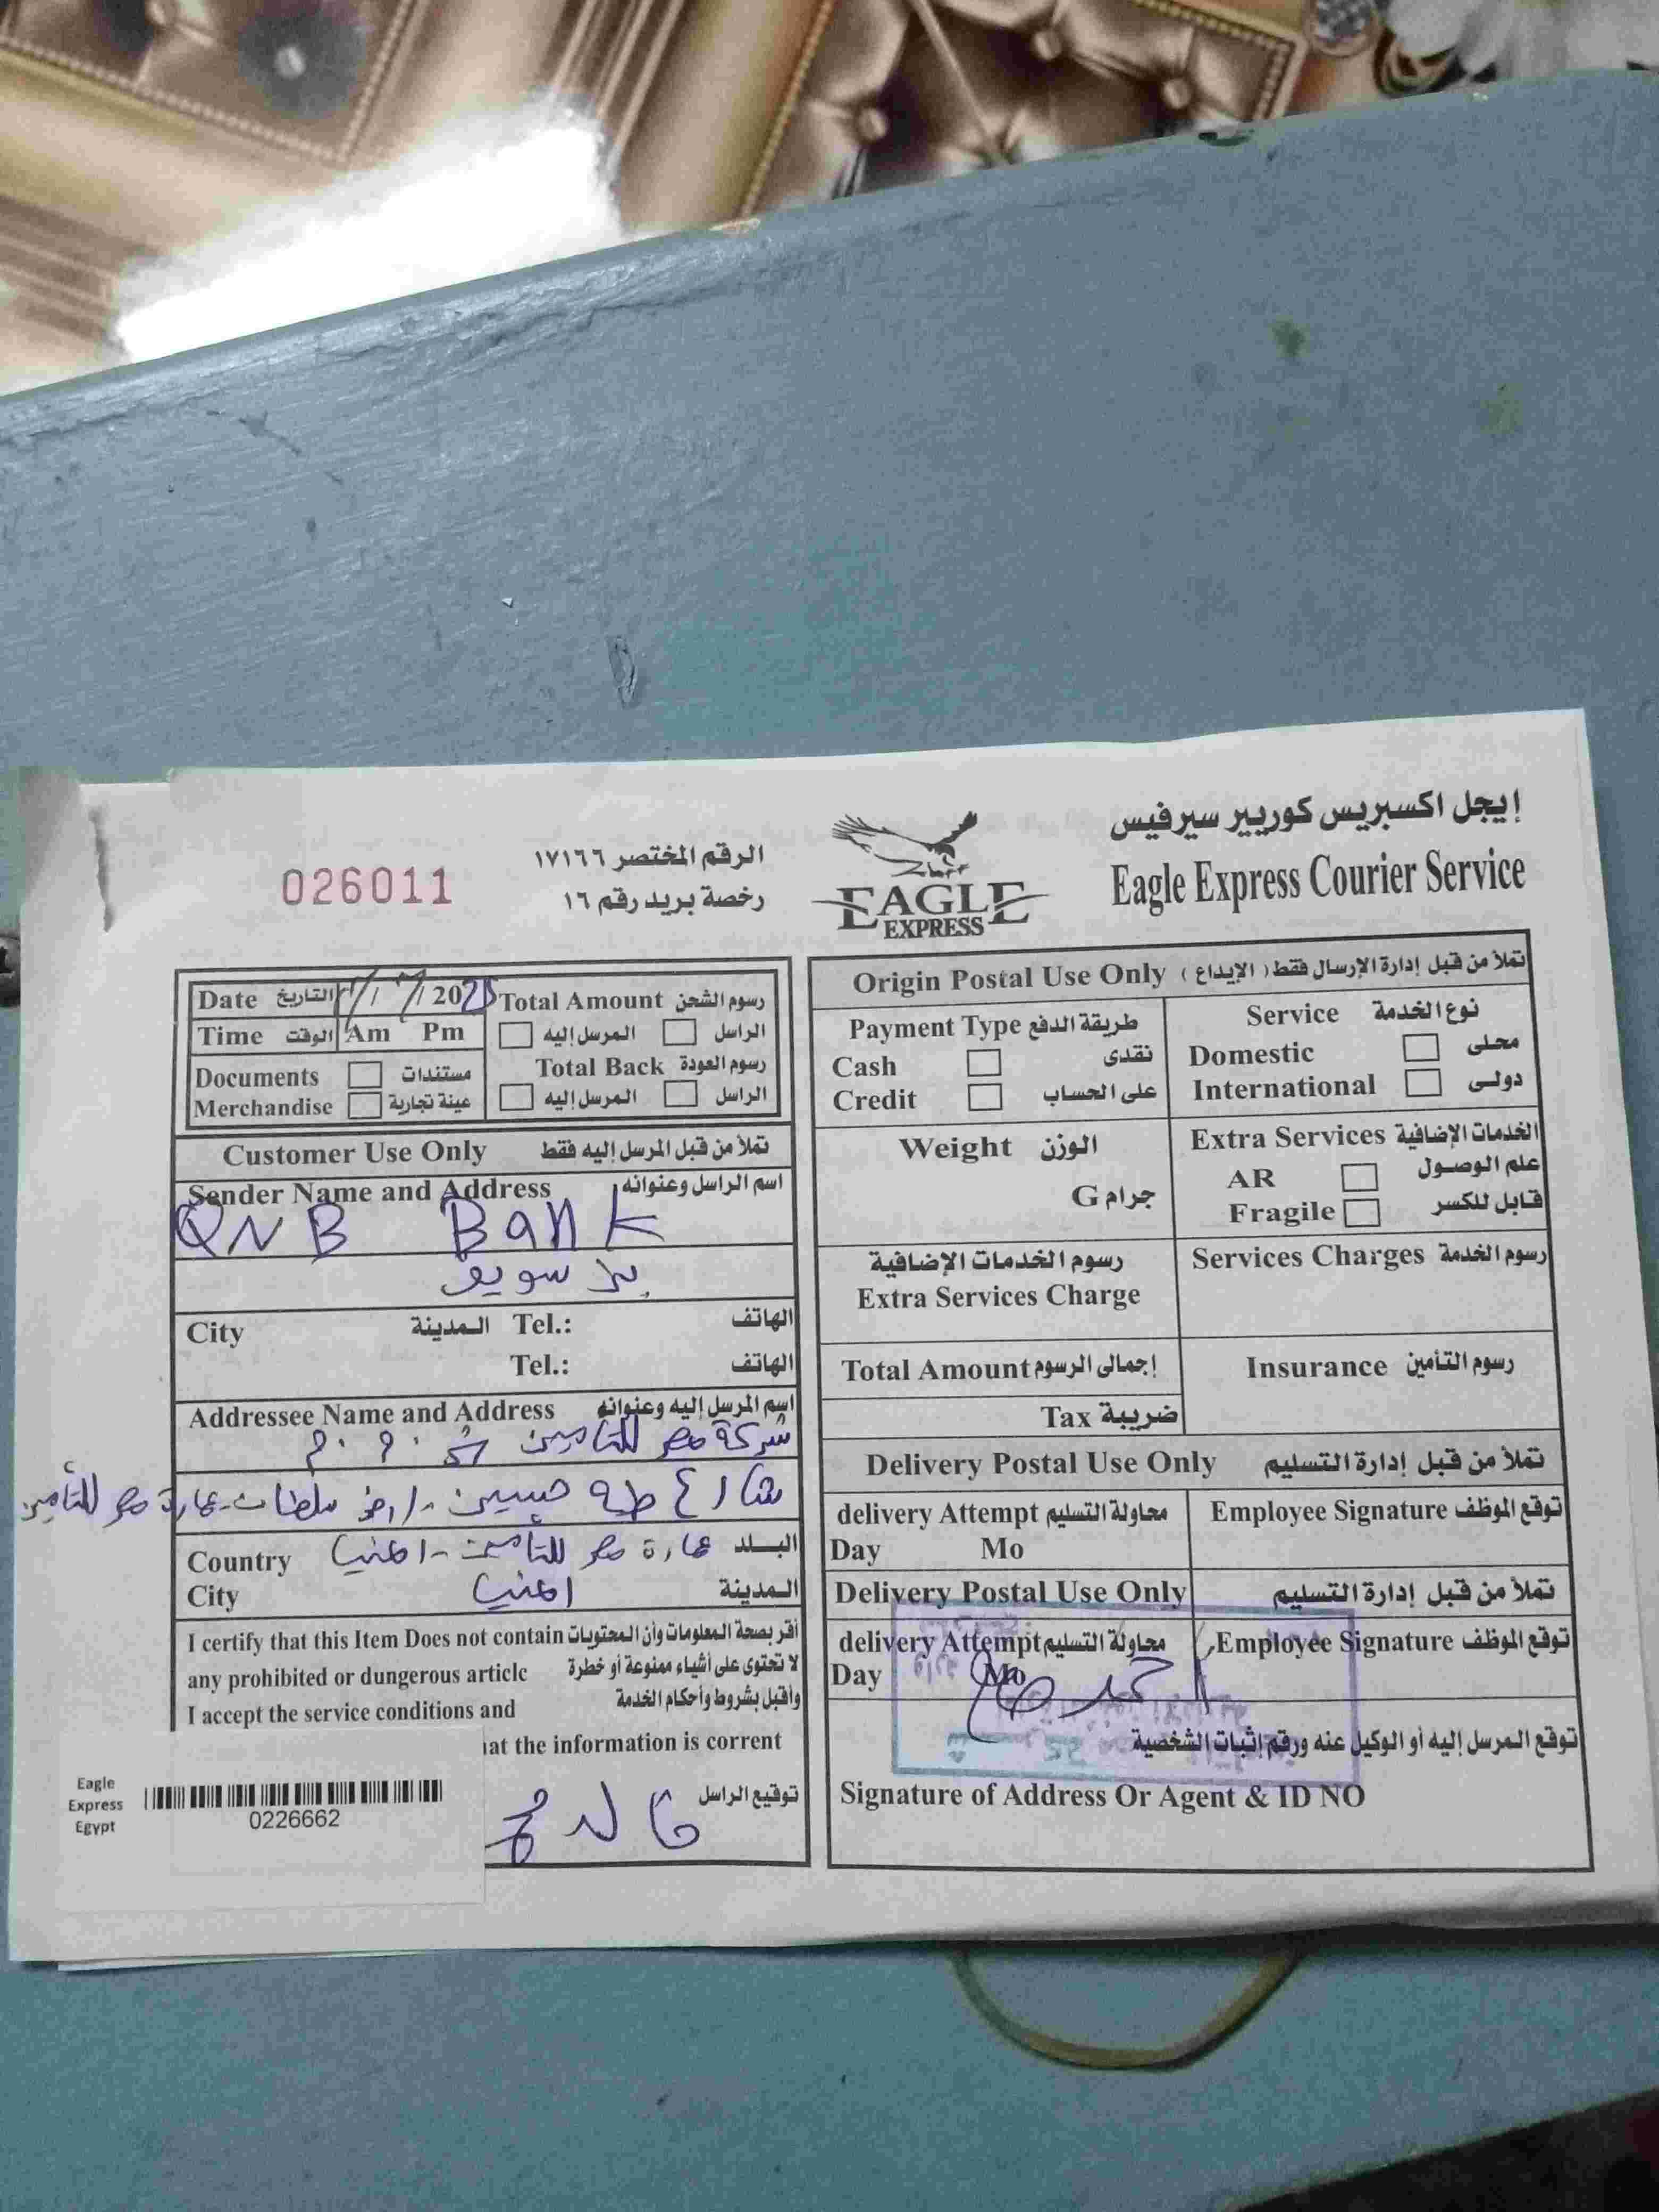 إيجل اكسبريس كوريير سيرفيس
Eagle Express Courier Service
EAGLE
EXPRESS
الرقم المختصر ١٧١٦٦
رخصة بريد رقم ١٦
026011
Date التاريخ / 7 / 2025
Time الوقت Am Pm
Documents مستندات
Merchandise عينة تجارية
Total Amount رسوم الشحن
المرسل إليه الراسل
Total Back رسوم العودة
المرسل إليه الراسل
Customer Use Only تملأ من قبل المرسل إليه فقط
Sender Name and Address اسم الراسل وعنوانه
QNB Bank
سويف
City المدينة Tel.: الهاتف
Tel.: الهاتف
Addressee Name and Address اسم المرسل إليه وعنوانه
شركة مصر للتأمين ش.م.م
شارع طه حسين - ارض سلطان - عمارة مصر للتأمين
Country عمارة مصر للتأمين - المنيا البلد
City المنيا المدينة
I certify that this Item Does not contain أقر بصحة المعلومات وأن المحتويات
any prohibited or dangerous article لا تحتوى على أشياء ممنوعة أو خطرة
I accept the service conditions and وأقبل بشروط وأحكام الخدمة
at the information is corrent
توقيع الراسل
Eagle
Express
Egypt
0226662
Origin Postal Use Only تملأ من قبل إدارة الإرسال فقط ( الإيداع )
Payment Type طريقة الدفع
Cash نقدى
Credit على الحساب
Service نوع الخدمة
Domestic محلى
International دولى
Weight الوزن
جرام G
Extra Services الخدمات الإضافية
AR علم الوصول
Fragile قابل للكسر
رسوم الخدمات الإضافية
Extra Services Charge
Services Charges رسوم الخدمة
Total Amount إجمالى الرسوم
Tax ضريبة
Insurance رسوم التأمين
Delivery Postal Use Only تملأ من قبل إدارة التسليم
delivery Attempt محاولة التسليم
Day Mo
Employee Signature توقع الموظف
Delivery Postal Use Only تملأ من قبل إدارة التسليم
delivery Attempt محاولة التسليم
Day Mo
Employee Signature توقع الموظف
توقع المرسل إليه أو الوكيل عنه ورقم إثبات الشخصية
Signature of Address Or Agent & ID NO